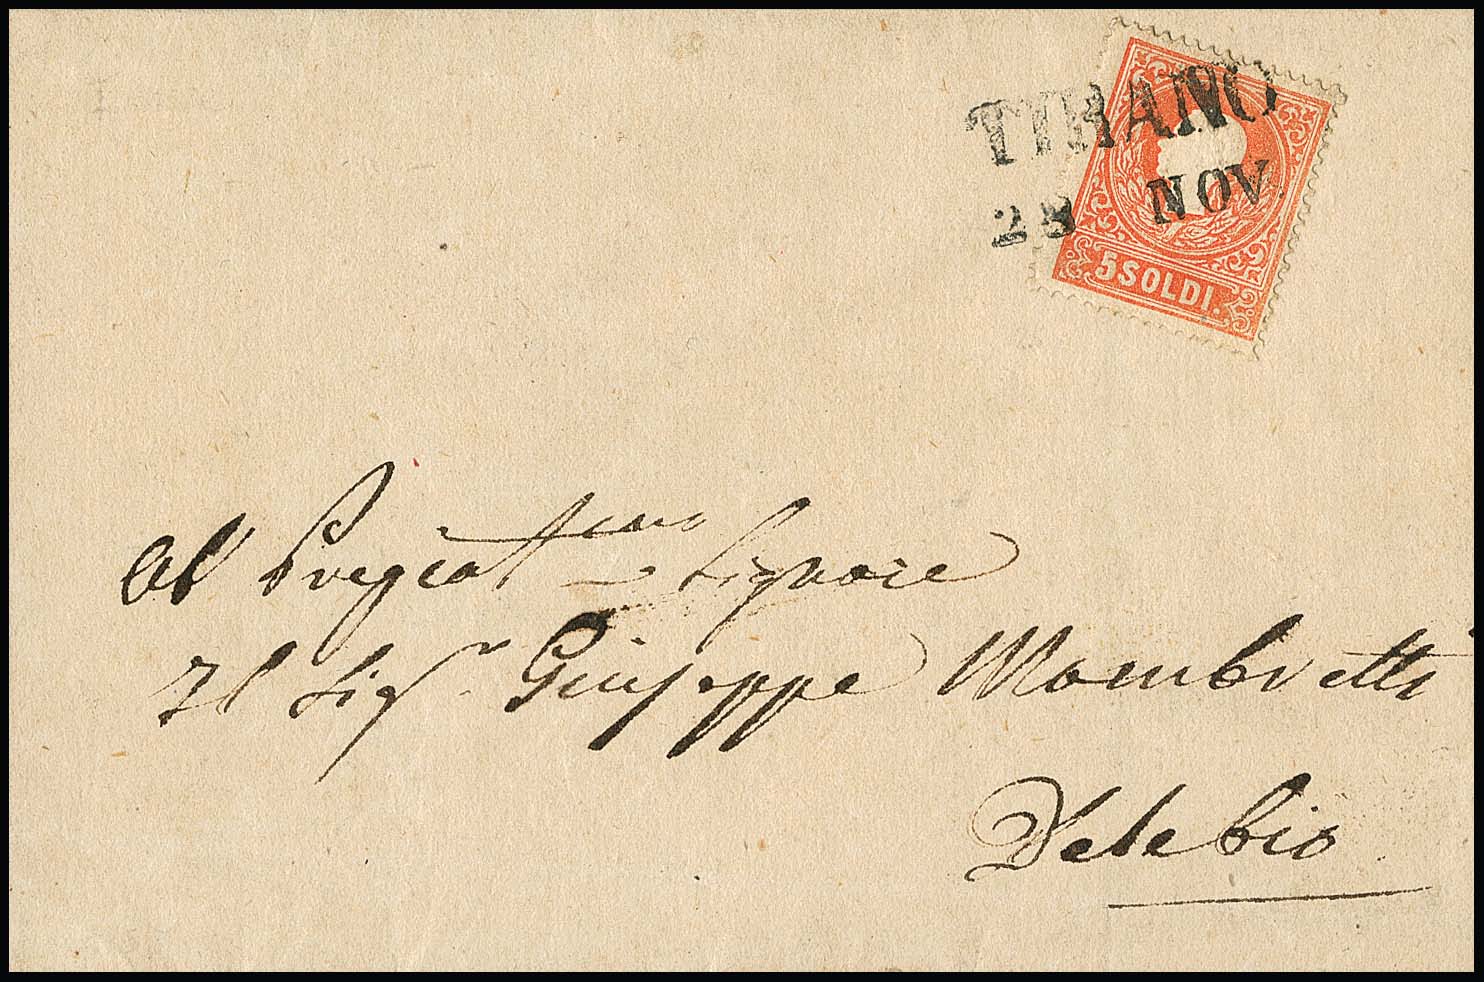 TIRANO
28 NOV.
5 SOLDI.
Al Pregiatmo Signore
Il Sigr Giuseppe Mambretti
Delebio